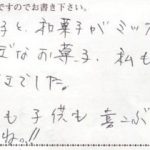 ですのでお書き下さい。
子と、和菓子がミッ
なお菓子、私も
までした。
も子供も喜こぶ
ね。!!